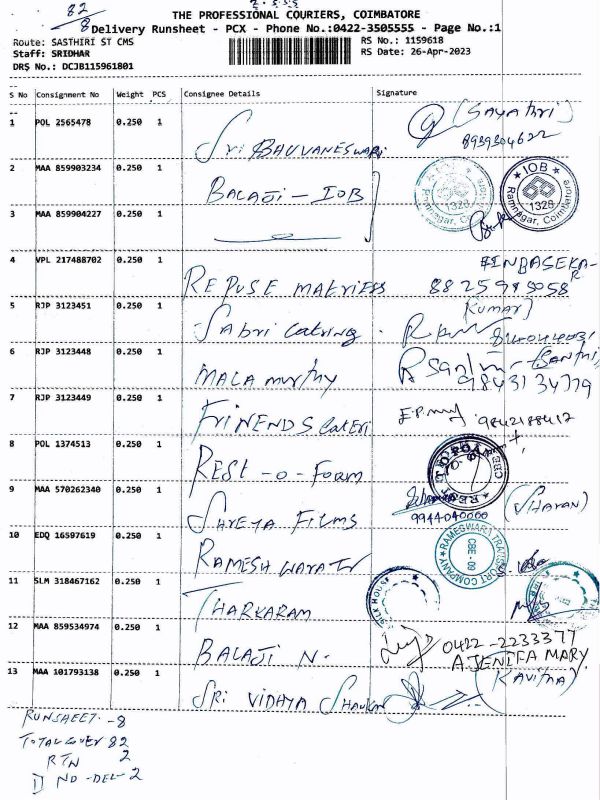 82
8
THE PROFESSIONAL COURIERS, COIMBATORE
Delivery Runsheet - PCX - Phone No.:0422-3505555 - Page No.:1
Route: SASTHIRI ST CMS
RS No.: 1159618
Staff: SRIDHAR
RS Date: 26-Apr-2023
DRS No.: DCJB115961801
S No Consignment No Weight PCS Consignee Details Signature
1 POL 2565478 0.250 1 Sri BHUVANESWARI (SAYATHRI)
8939304622
2 MAA 859903234 0.250 1 BALAJI - IOB
IOB
1328
Ramnagar, Coimbatore
3 MAA 859904227 0.250 1
4 VPL 217488702 0.250 1 REPUSE MATRIESS
8825985058
5 RJP 3123451 0.250 1 Sabri Catring
6 RJP 3123448 0.250 1 MALA MURTHY
9843134779
7 RJP 3123449 0.250 1 FRINENDS Cateri
9842188412
8 POL 1374513 0.250 1 REST - O - FORM
9 MAA 570262340 0.250 1 SHREYA FILMS
9944040000
10 EDQ 16597619 0.250 1 RAMESHWARA TR
RAMESWARI TRANSPORT COMPANY
CBE - 09
11 SLM 318467162 0.250 1 THARKARAM
SILK HOUSE
12 MAA 859534974 0.250 1 BALAJI N.
0422-2233377
A JENIFA MARY
13 MAA 101793138 0.250 1 SRI VIDHYA
(Kavitha)
RUNSHEET - 8
TOTAL COVER 82
RTN 2
ND-DEL-2